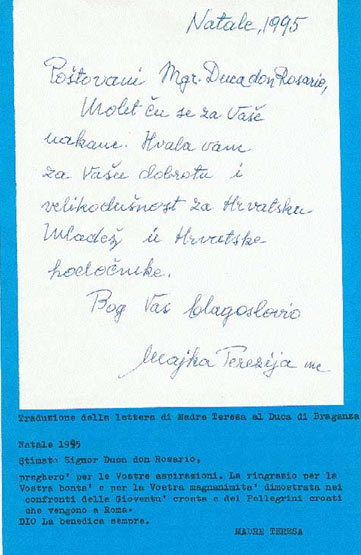 Natale, 1995
Poštovani Mgr. Duca don Rosario,
Molit ču se za Vaše
nakane. Hvala vam
za Vašu dobrotu i
velikodušnost za Hrvatsku
Mladež i Hrvatske
hodočnike.
Bog Vas blagoslovio
Majka Terezija mc
Traduzione della lettera di Madre Teresa al Duca di Braganza
Natale 1995
Stimato Signor Duca don Rosario,
pregherò' per le Vostre aspirazioni. La ringrazio per la
Vostra bonta' e per la Vostra magnanimita' dimostrata nei
confronti della Gioventu' croata e dei Pellegrini croati
che vengono a Roma.
DIO La benedica sempre.
MADRE TERESA